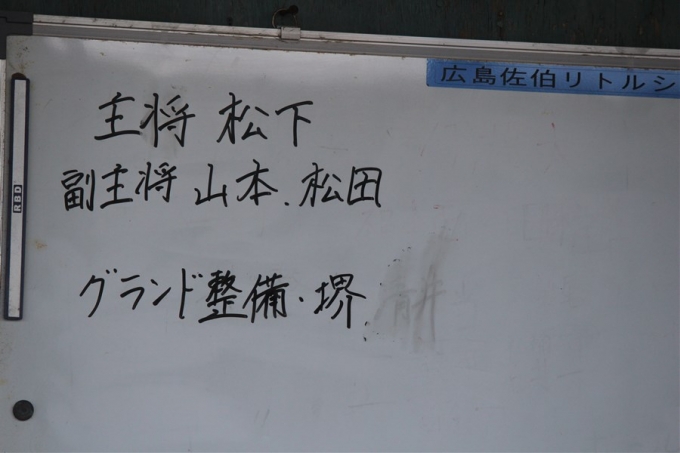 広島佐伯リトルシ
主将 松下
副主将 山本、松田
グランド整備・堺
RBD